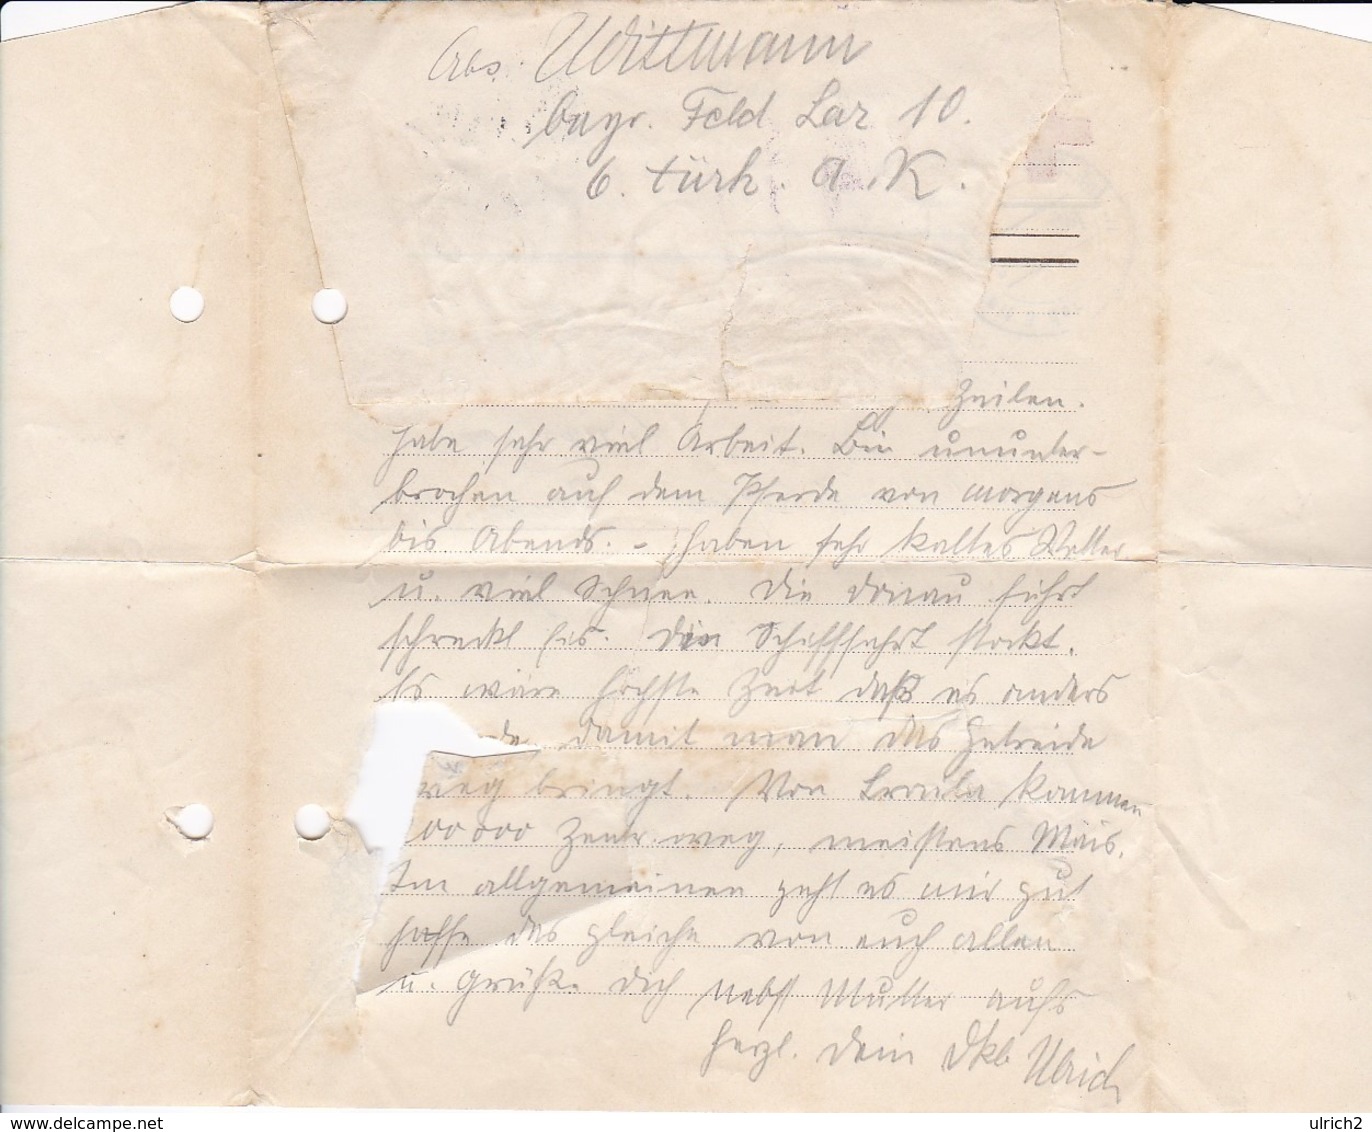 Abs. Wittmann
bayr. Feld Laz 10.
6. türk. A.K.
Zeilen.
habe sehr viel Arbeit. Bin ununter-
brochen auf dem Pferde von morgens
bis Abends. - Haben sehr kaltes Wetter
u. viel Schnee. Die Donau führt
schreckl Eis. Die Schifffahrt stockt.
Es wäre höchste Zeit daß es anders
de, damit man das Getreide
weg bringt. Von Braila kommen
00 000 Zentr. weg, meistens Mais.
Im allgemeinen geht es mir gut
hoffe das gleiche von euch allen
u. grüße Dich nebst Mutter aufs
herzl. Dein Dkb Ulrich
ulrich2
delcampe.net